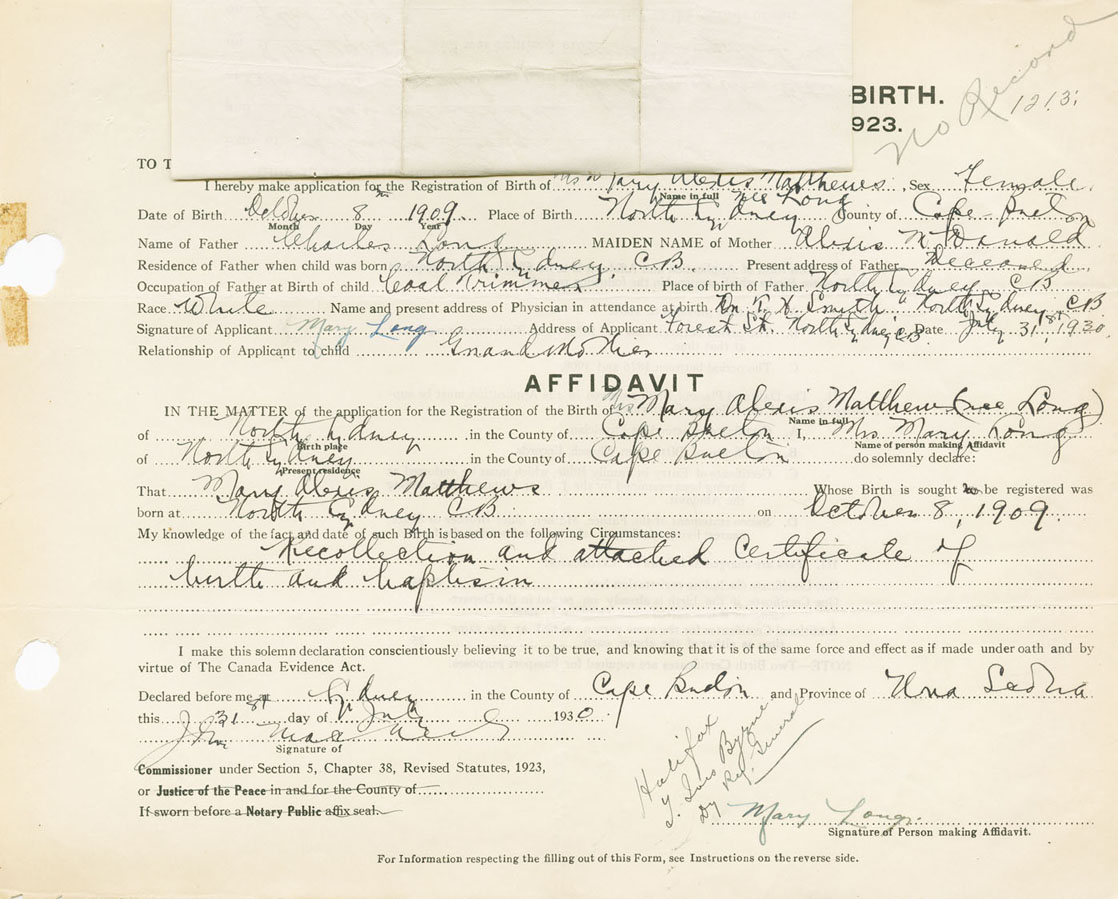 BIRTH.
923.
No Record
1213
TO T
I hereby make application for the Registration of Birth of Mrs Mary Alexis Matthews Sex Female.
Name in full nee Long
Date of Birth October 8th 1909. Place of Birth North Sydney County of Cape Breton
Month Day Year
Name of Father Charles Long MAIDEN NAME of Mother Alexis McDonald
Residence of Father when child was born North Sydney, C.B. Present address of Father Deceased
Occupation of Father at Birth of child Coal Trimmer Place of birth of Father North Sydney C B
Race White Name and present address of Physician in attendance at birth Dr. Smyth North Sydney C B
Signature of Applicant Mary Long Address of Applicant Forest St. North Sydney C B Date July 31st, 1930
Relationship of Applicant to child Grand Mother
AFFIDAVIT
IN THE MATTER of the application for the Registration of the Birth of Mrs Mary Alexis Matthew (nee Long)
Name in full
of North Sydney in the County of Cape Breton I, Mrs Mary Long
Birth place Name of person making Affidavit
of North Sydney in the County of Cape Breton do solemnly declare:
Present residence
That Mary Alexis Matthews Whose Birth is sought to be registered was
born at North Sydney C B on October 8, 1909.
My knowledge of the fact and date of such Birth is based on the following Circumstances:
Recollection and attached Certificate of
birth and baptism
I make this solemn declaration conscientiously believing it to be true, and knowing that it is of the same force and effect as if made under oath and by
virtue of The Canada Evidence Act.
Declared before me at Sydney in the County of Cape Breton and Province of Nova Scotia
this 31st day of July 1930
John
Signature of
Commissioner under Section 5, Chapter 38, Revised Statutes, 1923,
or Justice of the Peace in and for the County of
If sworn before a Notary Public affix seal.
Halifax
Byrne
Dy Reg. General
Mary Long.
Signature of Person making Affidavit.
For Information respecting the filling out of this Form, see Instructions on the reverse side.